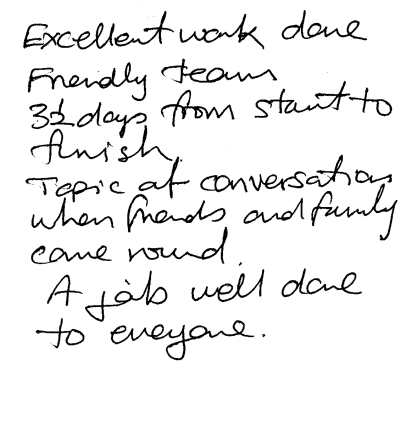 Excellent work done
Friendly team
3½ days from start to
finish.
Topic of conversation
when friends and family
came round.
A job well done
to everyone.